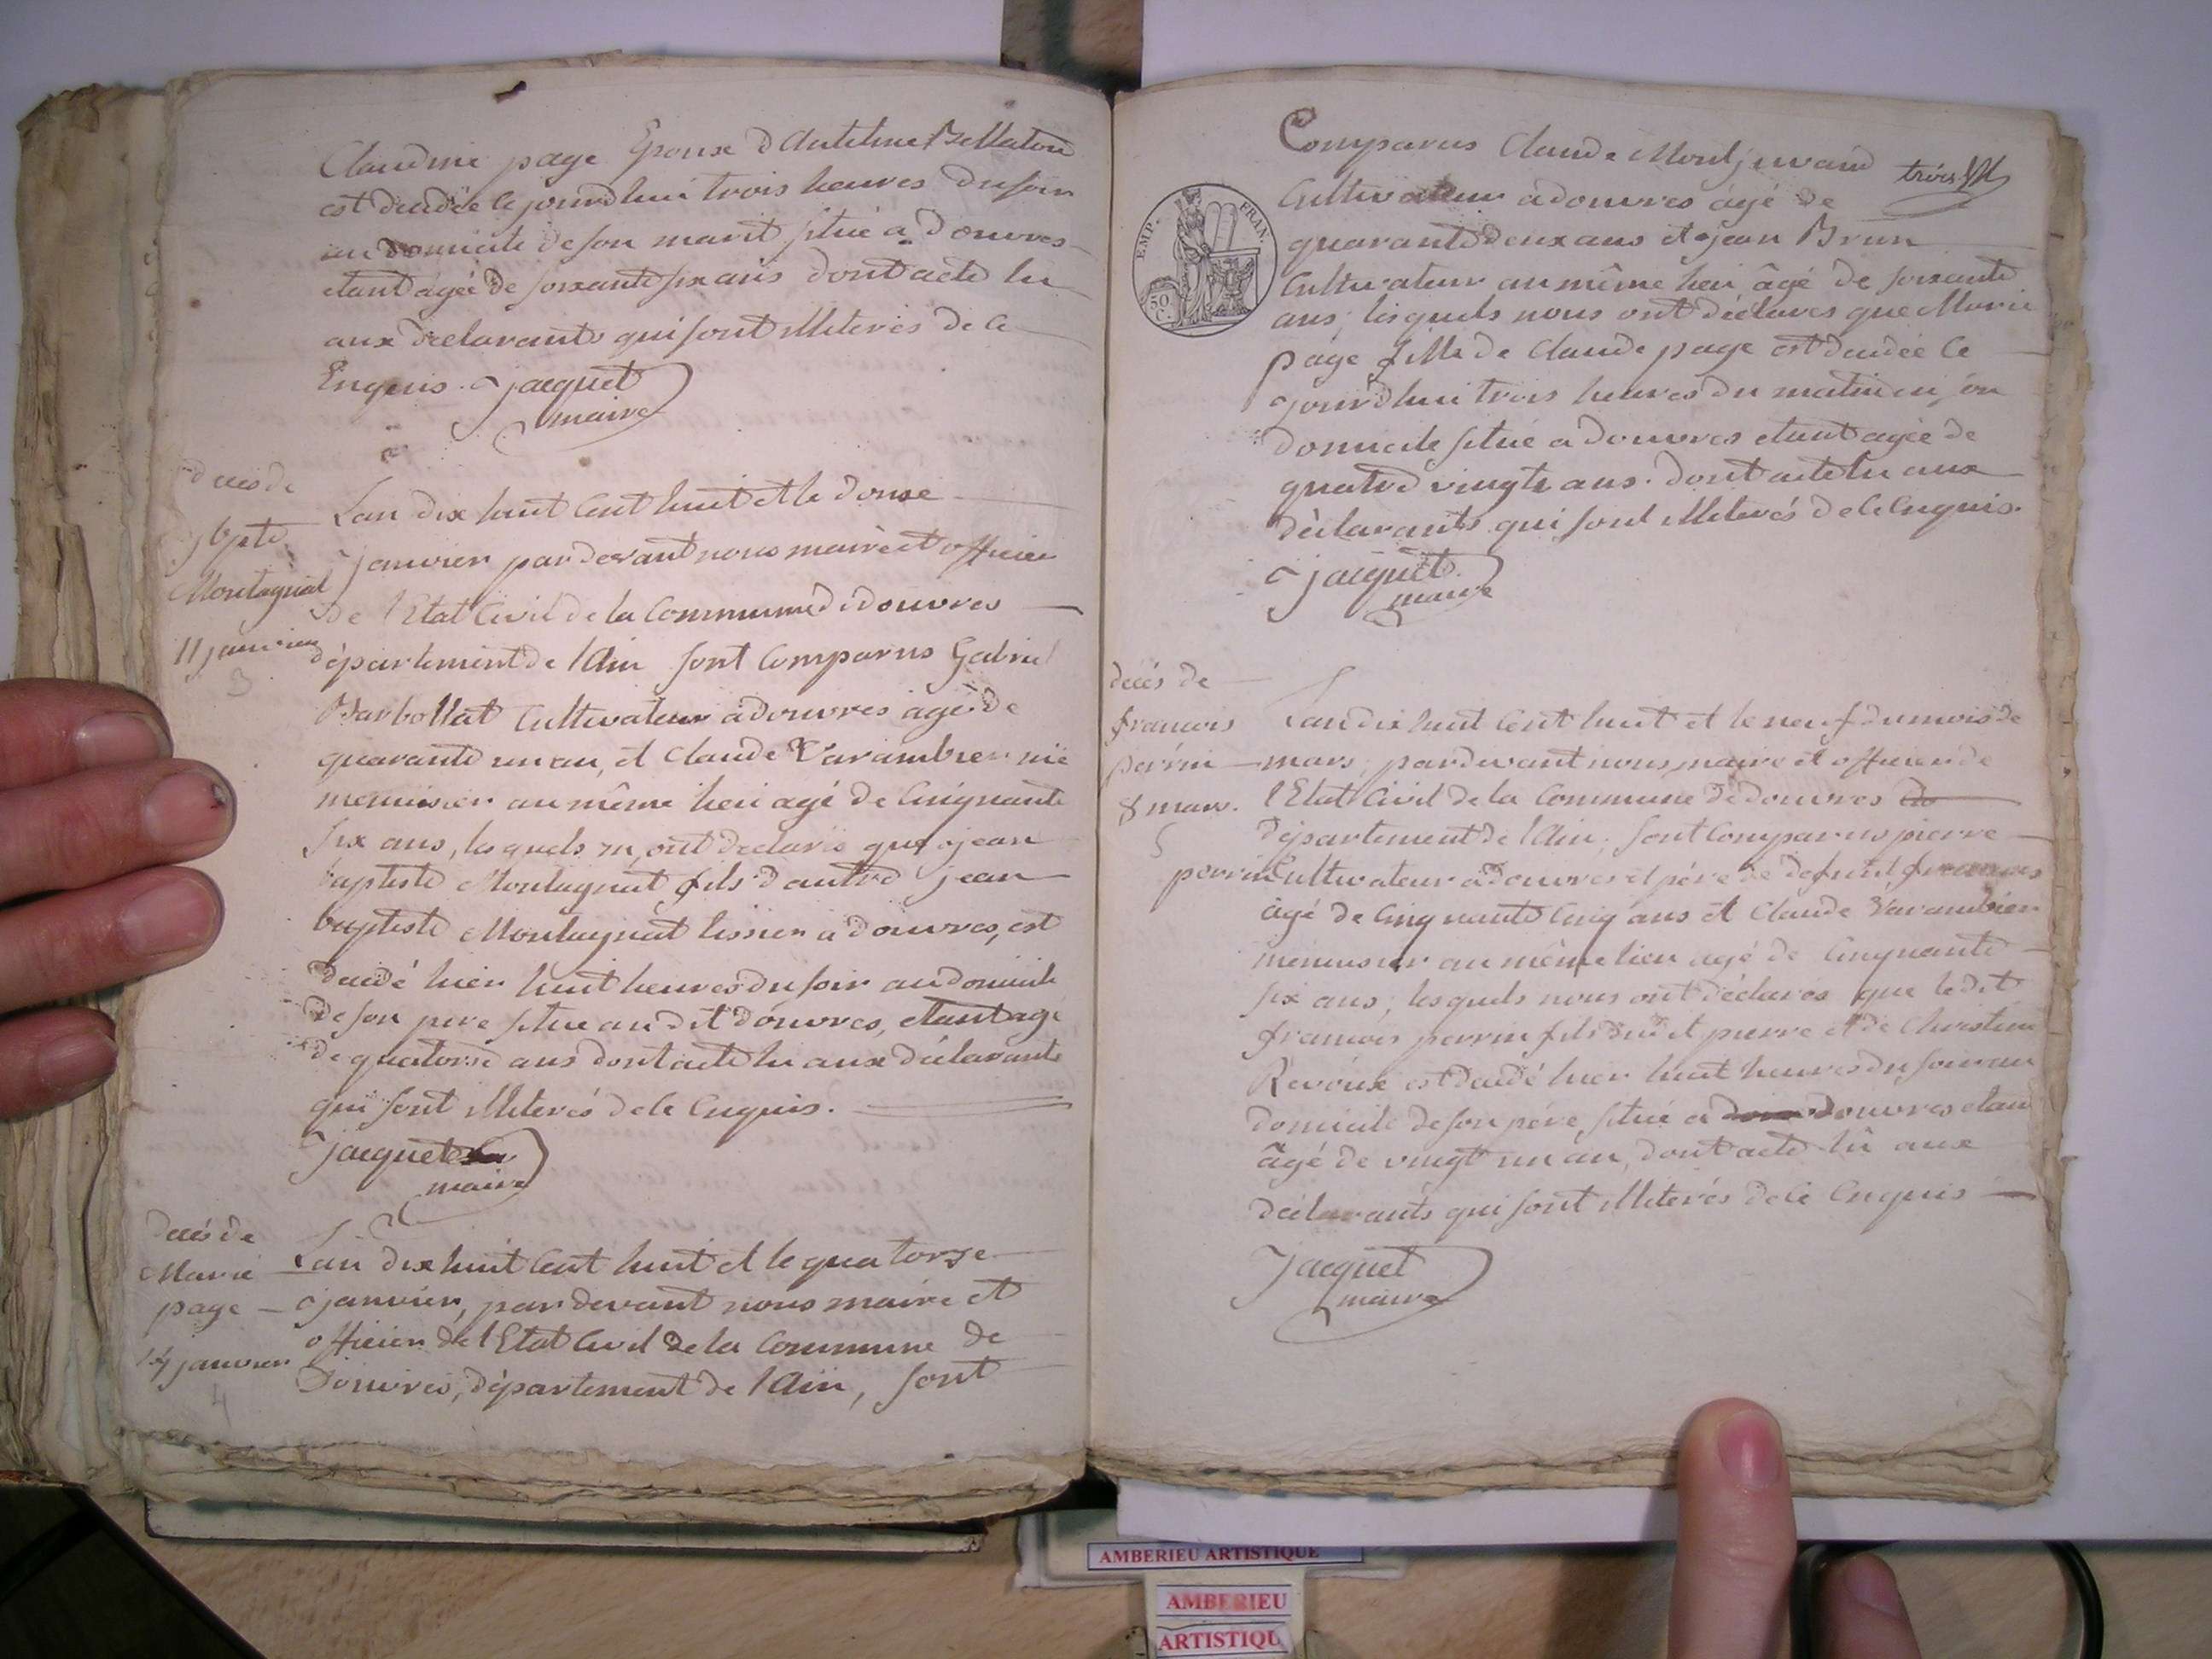 Claudine page Epouse d'Antelme Bellaton
est decedée cejourdhui trois heures du soir
au domicile de son marit situé a Douvres
etant agée de soixante six ans dont acte lu
aux declarants qui sont illiterés de ce
Enquis. jacquet
maire
deces de
j bpte
Montagnat
11 janvier
3
Lan dix huit cent huit et le douze
janvier par devant nous maire et officier
de l'Etat Civil de la Commune de douvres
département de l'Ain sont Comparus Gabriel
Barbollat Cultivateur a douvres agé de
quarante un an, et Claude Varambier
menuisier au même lieu agé de Cinquante
six ans, lesquels m'ont declaré que jean
baptiste Montagnat fils d'autre jean
baptiste Montagnat tissier a douvres, est
decedé hier huit heures du soir au domicile
de son pere situé au dit douvres, etant agé
de quatorse ans dont acte lu aux déclarants
qui sont illiterés de ce Enquis.
jacquet
maire
decés de
Marie
page
14 janvier
4
Lan dix huit cent huit et le quatorze
janvier, par devant nous maire et
officier de l'Etat Civil de la Commune de
Douvres, département de l'Ain, sont
trois
EMP. FRAN.
50 C.
Comparus Claude Montjuvand
Cultivateur a douvres âgé de
quarante deux ans et jean Brun
Cultivateur au même lieu âgé de soixante
ans, lesquels nous ont déclarés que Marie
page fille de Claude page est decedée ce
jourd'hui trois heures du matin en son
domicile situé a douvres etant agée de
quatre vingts ans. dont acte lu aux
déclarants qui sont illiterés de ce Enquis.
jacquet
maire
décés de
francois
perrin
8 mars.
5
Lan dix huit cent huit et le neuf du mois de
mars, pardevant nous maire et officier de
l'Etat Civil de la Commune de douvres
département de l'Ain, sont Comparus pierre
perrin Cultivateur a douvres et pére de defunt francois
âgé de Cinquante Cinq ans et Claude Varambier
menuisier au même lieu agé de Cinquante
six ans, lesquels nous ont déclarés que le dit
francois perrin fils du dit pierre et de Christine
Revoux est decedé hier huit heures du soir au
domicile de son pére, situé a douvres etant
âgé de vingt un an, dont acte lû aux
déclarants qui sont illiterés de ce Enquis
Jacquet
maire
AMBERIEU ARTISTIQUE
AMBERIEU
ARTISTIQU